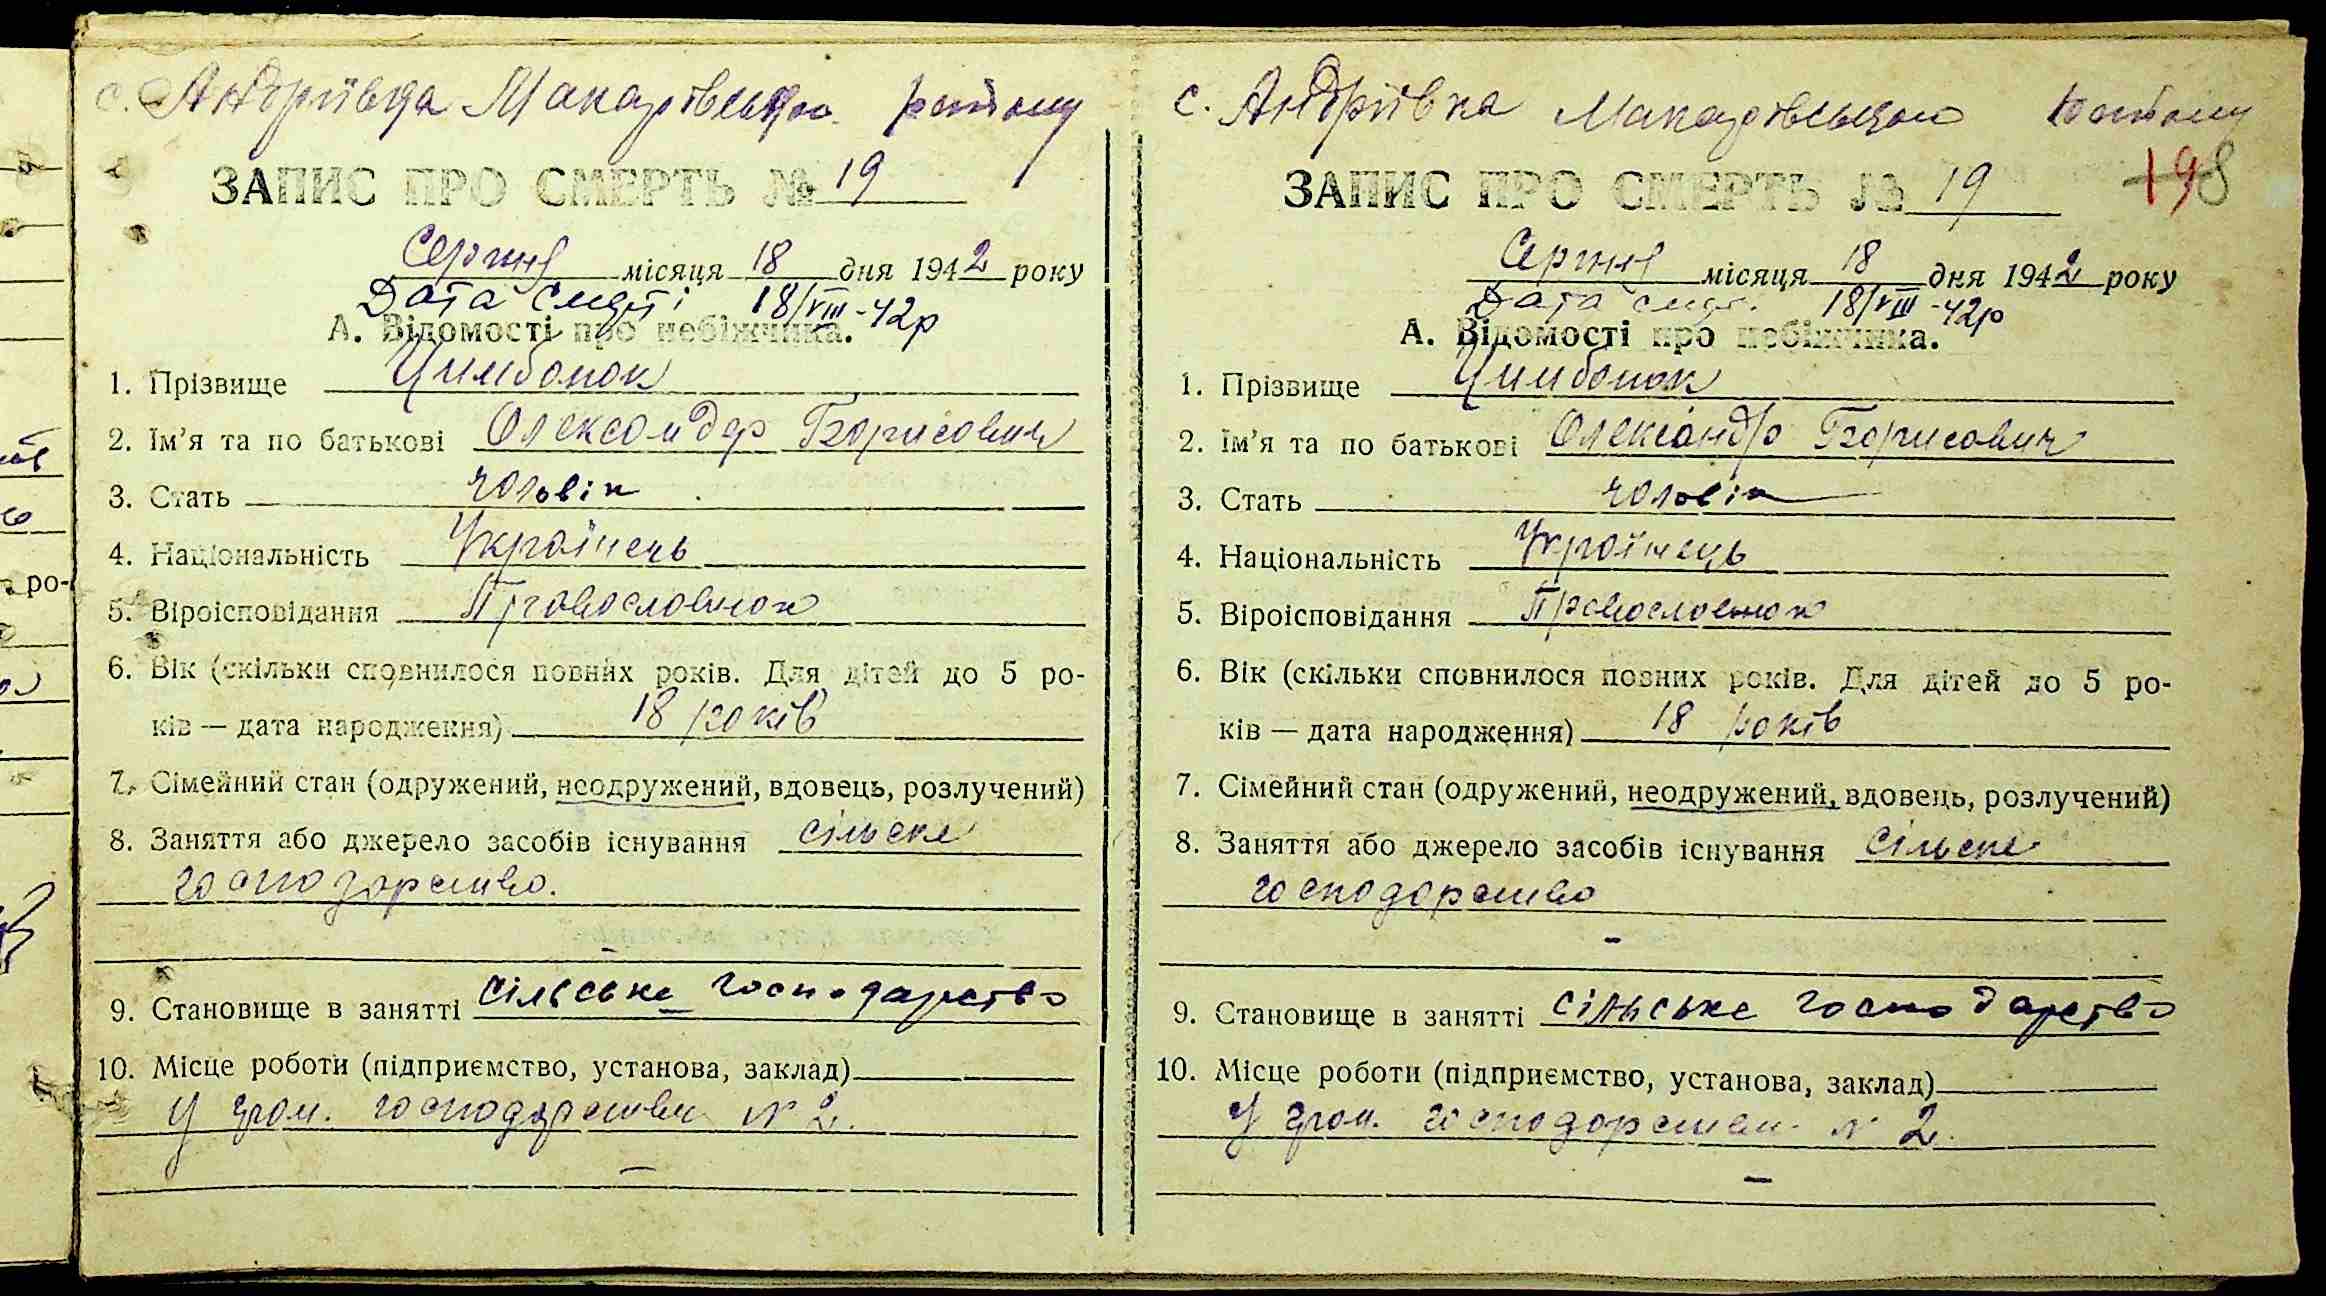 с. Андріївка Макарівського району
ЗАПИС ПРО СМЕРТЬ № 19
Серпня місяця 18 дня 1942 року
Дата смерті 18/VIII-42р
А. Відомості про небіжчика.
1. Прізвище Цимбалюк
2. Ім'я та по батькові Олександр Борисович
3. Стать чоловік
4. Національність Українець
5. Віроісповідання Православной
6. Вік (скільки сповнилося повних років. Для дітей до 5 ро-
ків — дата народження) 18 років
7. Сімейний стан (одружений, неодружений, вдовець, розлучений)
8. Заняття або джерело засобів існування сільске
господарство.
–
9. Становище в занятті сільське господарство
10. Місце роботи (підприємство, установа, заклад)
У гром. господарстви N 2.
–
с. Андріївка Макарівського району
198
ЗАПИС ПРО СМЕРТЬ № 19
Серпня місяця 18 дня 1942 року
Дата смерт. 18/VIII-42р
А. Відомості про небіжчика.
1. Прізвище
2. Ім'я та по батькові Олександр Борисович
3. Стать чоловік
4. Національність Українець
5. Віроісповідання
6. Вік (скільки сповнилося повних років. Для дітей до 5 ро-
ків — дата народження) 18 років
7. Сімейний стан (одружений, неодружений, вдовець, розлучений)
8. Заняття або джерело засобів існування сільске
господарство
–
9. Становище в занятті сільське господарство
10. Місце роботи (підприємство, установа, заклад)
У гром. господарстви N 2.
–